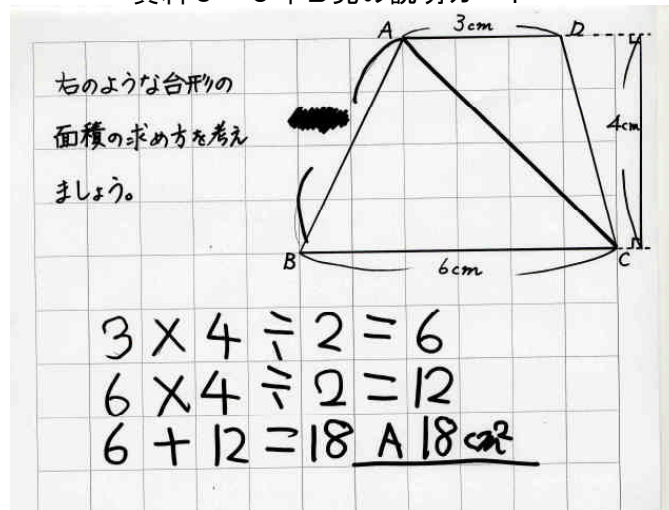 A 3cm D
右のような台形の
面積の求め方を考え
ましょう。
4cm
B 6cm C
3×4÷2=6
6×4÷2=12
6+12=18 A 18cm²